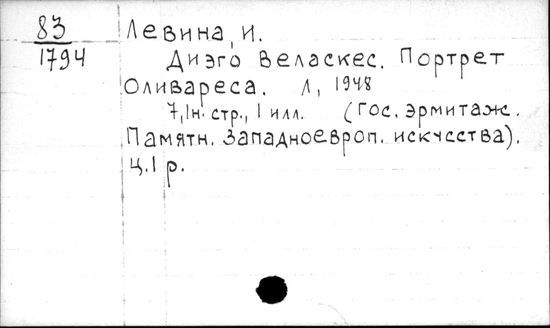 83
1794
Левина, И.
Диэго Веласкес. Портрет
Оливареса. Л, 1948
7,1н. стр., 1 илл. (Гос. Эрмитаж.
Памятн. Западноевроп. искусства).
Ц. 1 р.